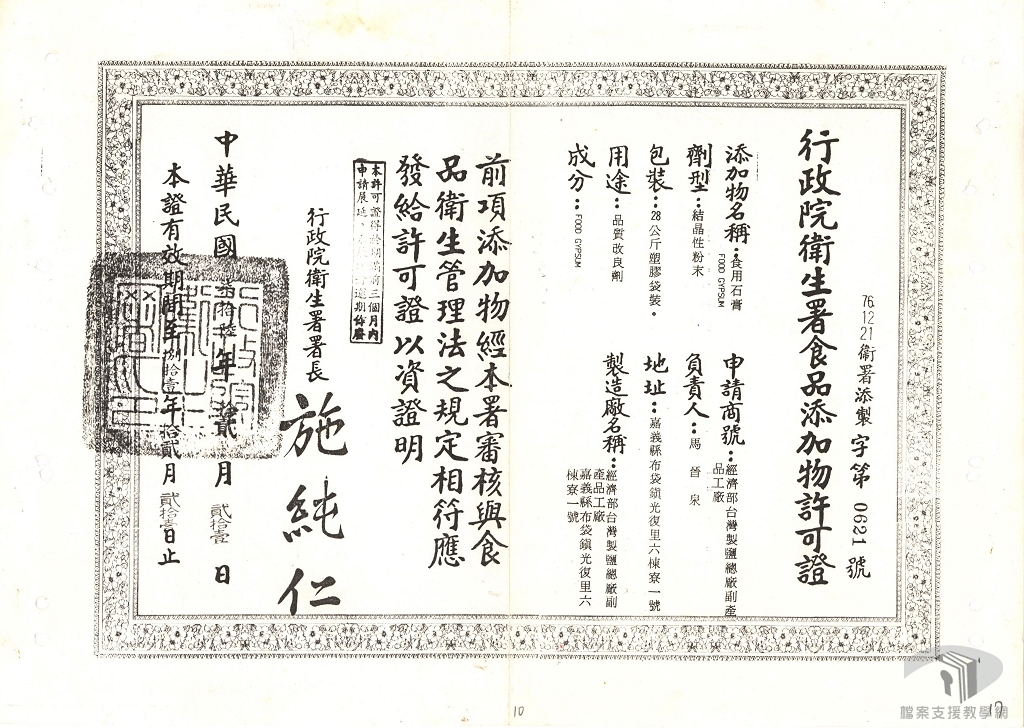 行政院衛生署食品添加物許可證
76.12.21衛署添製字第 0621 號
添加物名稱：食用石膏
FOOD GYPSUM
劑型：結晶性粉末
包裝：28公斤塑膠袋裝．
用途：品質改良劑
成分：FOOD GYPSUM
申請商號：經濟部台灣製鹽總廠副產
品工廠
負責人：馬晉泉
地址：嘉義縣布袋鎮光復里六棟寮一號
製造廠名稱：經濟部台灣製鹽總廠副
產品工廠
嘉義縣布袋鎮光復里六
棟寮一號
前項添加物經本署審核與食
品衛生管理法之規定相符應
發給許可證以資證明
本許可證得於期滿前三個月內
申請展延逾期作廢
行政院衛生署署長 施純仁
中華民國柒拾陸年貳月貳拾壹日
本證有效期間至捌拾壹年拾貳月貳拾壹日止
10
17
檔案支援教學網